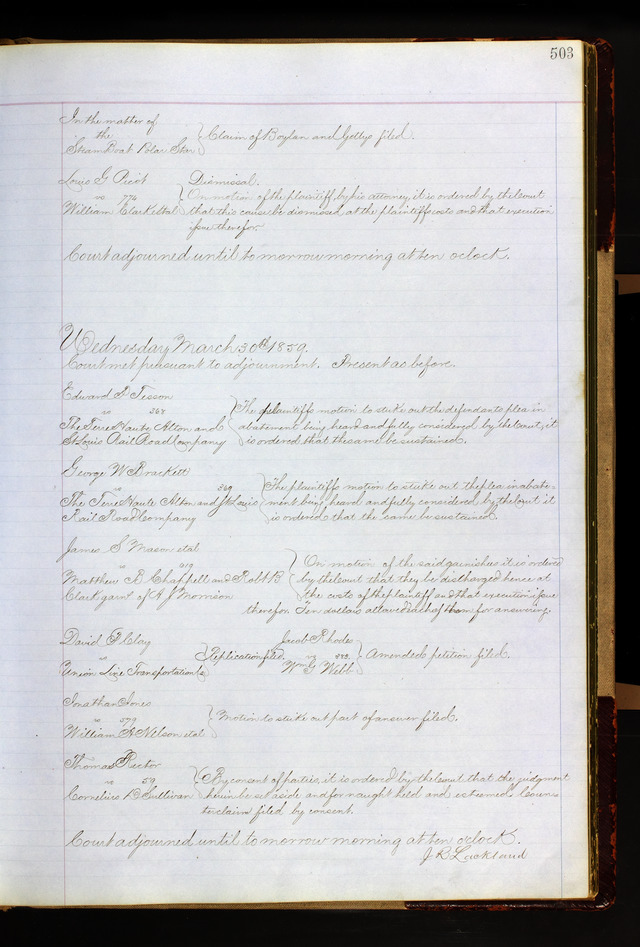 503
In the matter of
the
Steam Boat Polar Star } Claim of Boylan and filed.
Louis G Picot Dismissal.
vs 774 } On motion of the plaintiff, by his attorney, it is ordered by the Court
William Clark etal that this cause be dismissed, at the plaintiffs costs and that execution
issue therefor
Court adjourned until to morrow morning at ten oclock.
Wednesday March 30th 1859.
Court met pursuant to adjournment. Present as before.
Edward P. Tesson
vs 368 } The plaintiffs motion to strike out the defendants plea in
The Terre Haute, Alton and abatement being heard and fully considered by the Court, it
St Louis Rail Road Company is ordered that the same be sustained.
George W Brackett
vs 369 } The plaintiffs motion to strike out the plea in abate-
The Terre Haute Alton and St Louis ment being heard and fully considered by the Court it
Rail Road Company is ordered that the same be sustained.
James S Mason etal
vs 919 } On motion of the said garnishees it is ordered
Matthew B Chappell and Robt B by the Court that they be discharged hence at
Clark garnt of A J Morrison the costs of the plaintiff and that execution issue
therefor. Ten dollars allowed each of them for answering.
David P. Clay
vs } Replication filed.
Union Line Transportation Co
Jacob Rhodes
vs 593 } Amended petition filed.
Wm G Webb
Jonathan Jones
vs 579 } Motion to strike out part of answer filed.
William A Nelson etal
Thomas Rector
vs 59 } By consent of parties, it is ordered by the Court that the judgment
Cornelius O'Sullivan herein be set aside and for naught held and esteemed. Coun-
terclaim filed by consent.
Court adjourned until to morrow morning at ten oclock.
J R Lackland